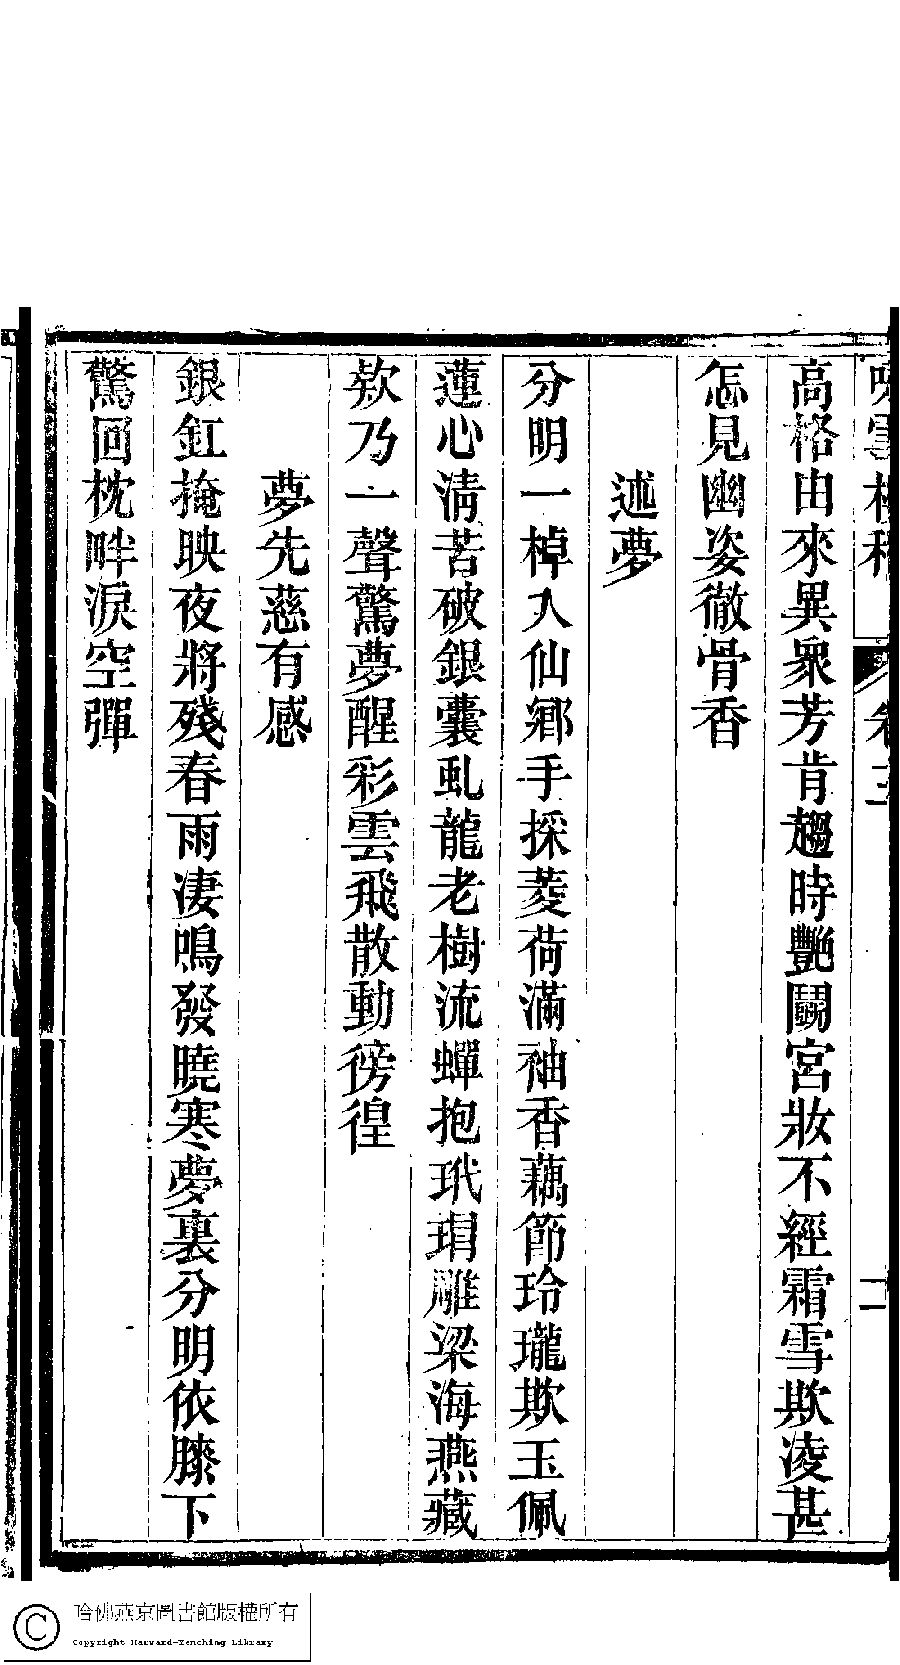 高格由來異衆芳肯趨時艷鬭宮妝不經霜雪欺凌甚
怎見幽姿徹骨香
述夢
分明一棹入仙鄉手採菱荷滿袖香藕節玲瓏欺玉佩
蓮心清苦破銀囊虬龍老樹流蟬抱玳瑁雕梁海燕藏
欸乃一聲驚夢醒彩雲飛散動徬徨
夢先慈有感
銀釭掩映夜將殘春雨淒鳴發曉寒夢裏分明依膝下
驚回枕畔淚空彈
哈佛燕京圖書館版權所有
Copyright Harvard-Yenching Library